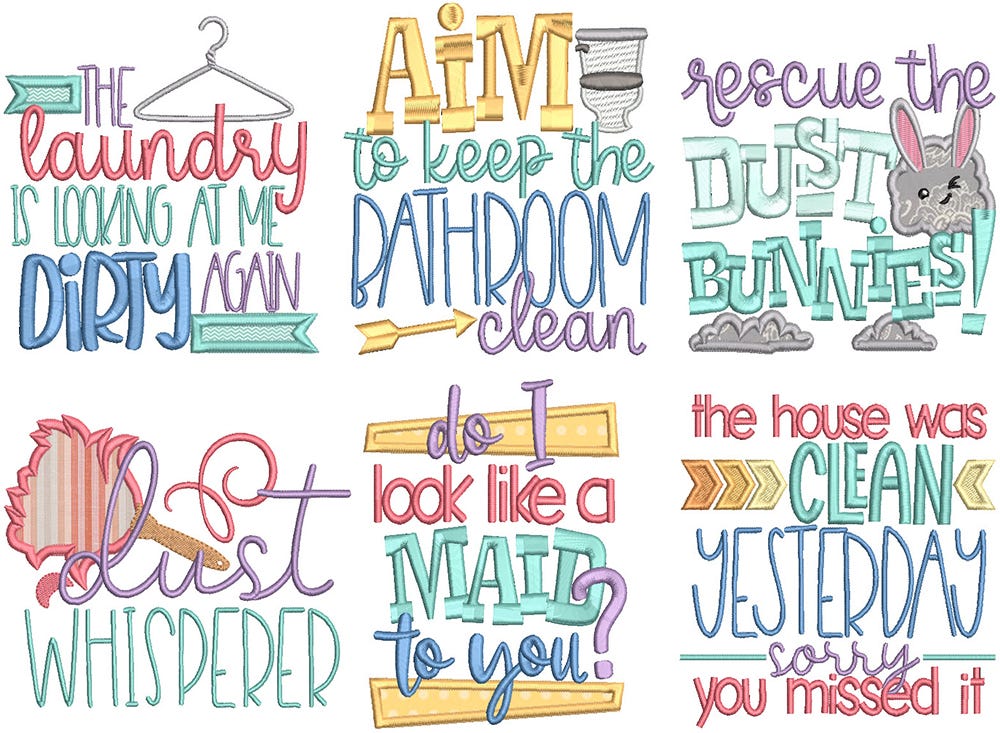 THE
laundry
IS LOOKING AT ME
DiRTY AGAIN
AiM
to keep the
BATHROOM
clean
rescue the
DUST
BUNNiES!
dust
WHISPERER
do I
look like a
MAID
to you?
the house was
CLEAN
YESTERDAY
sorry
you missed it